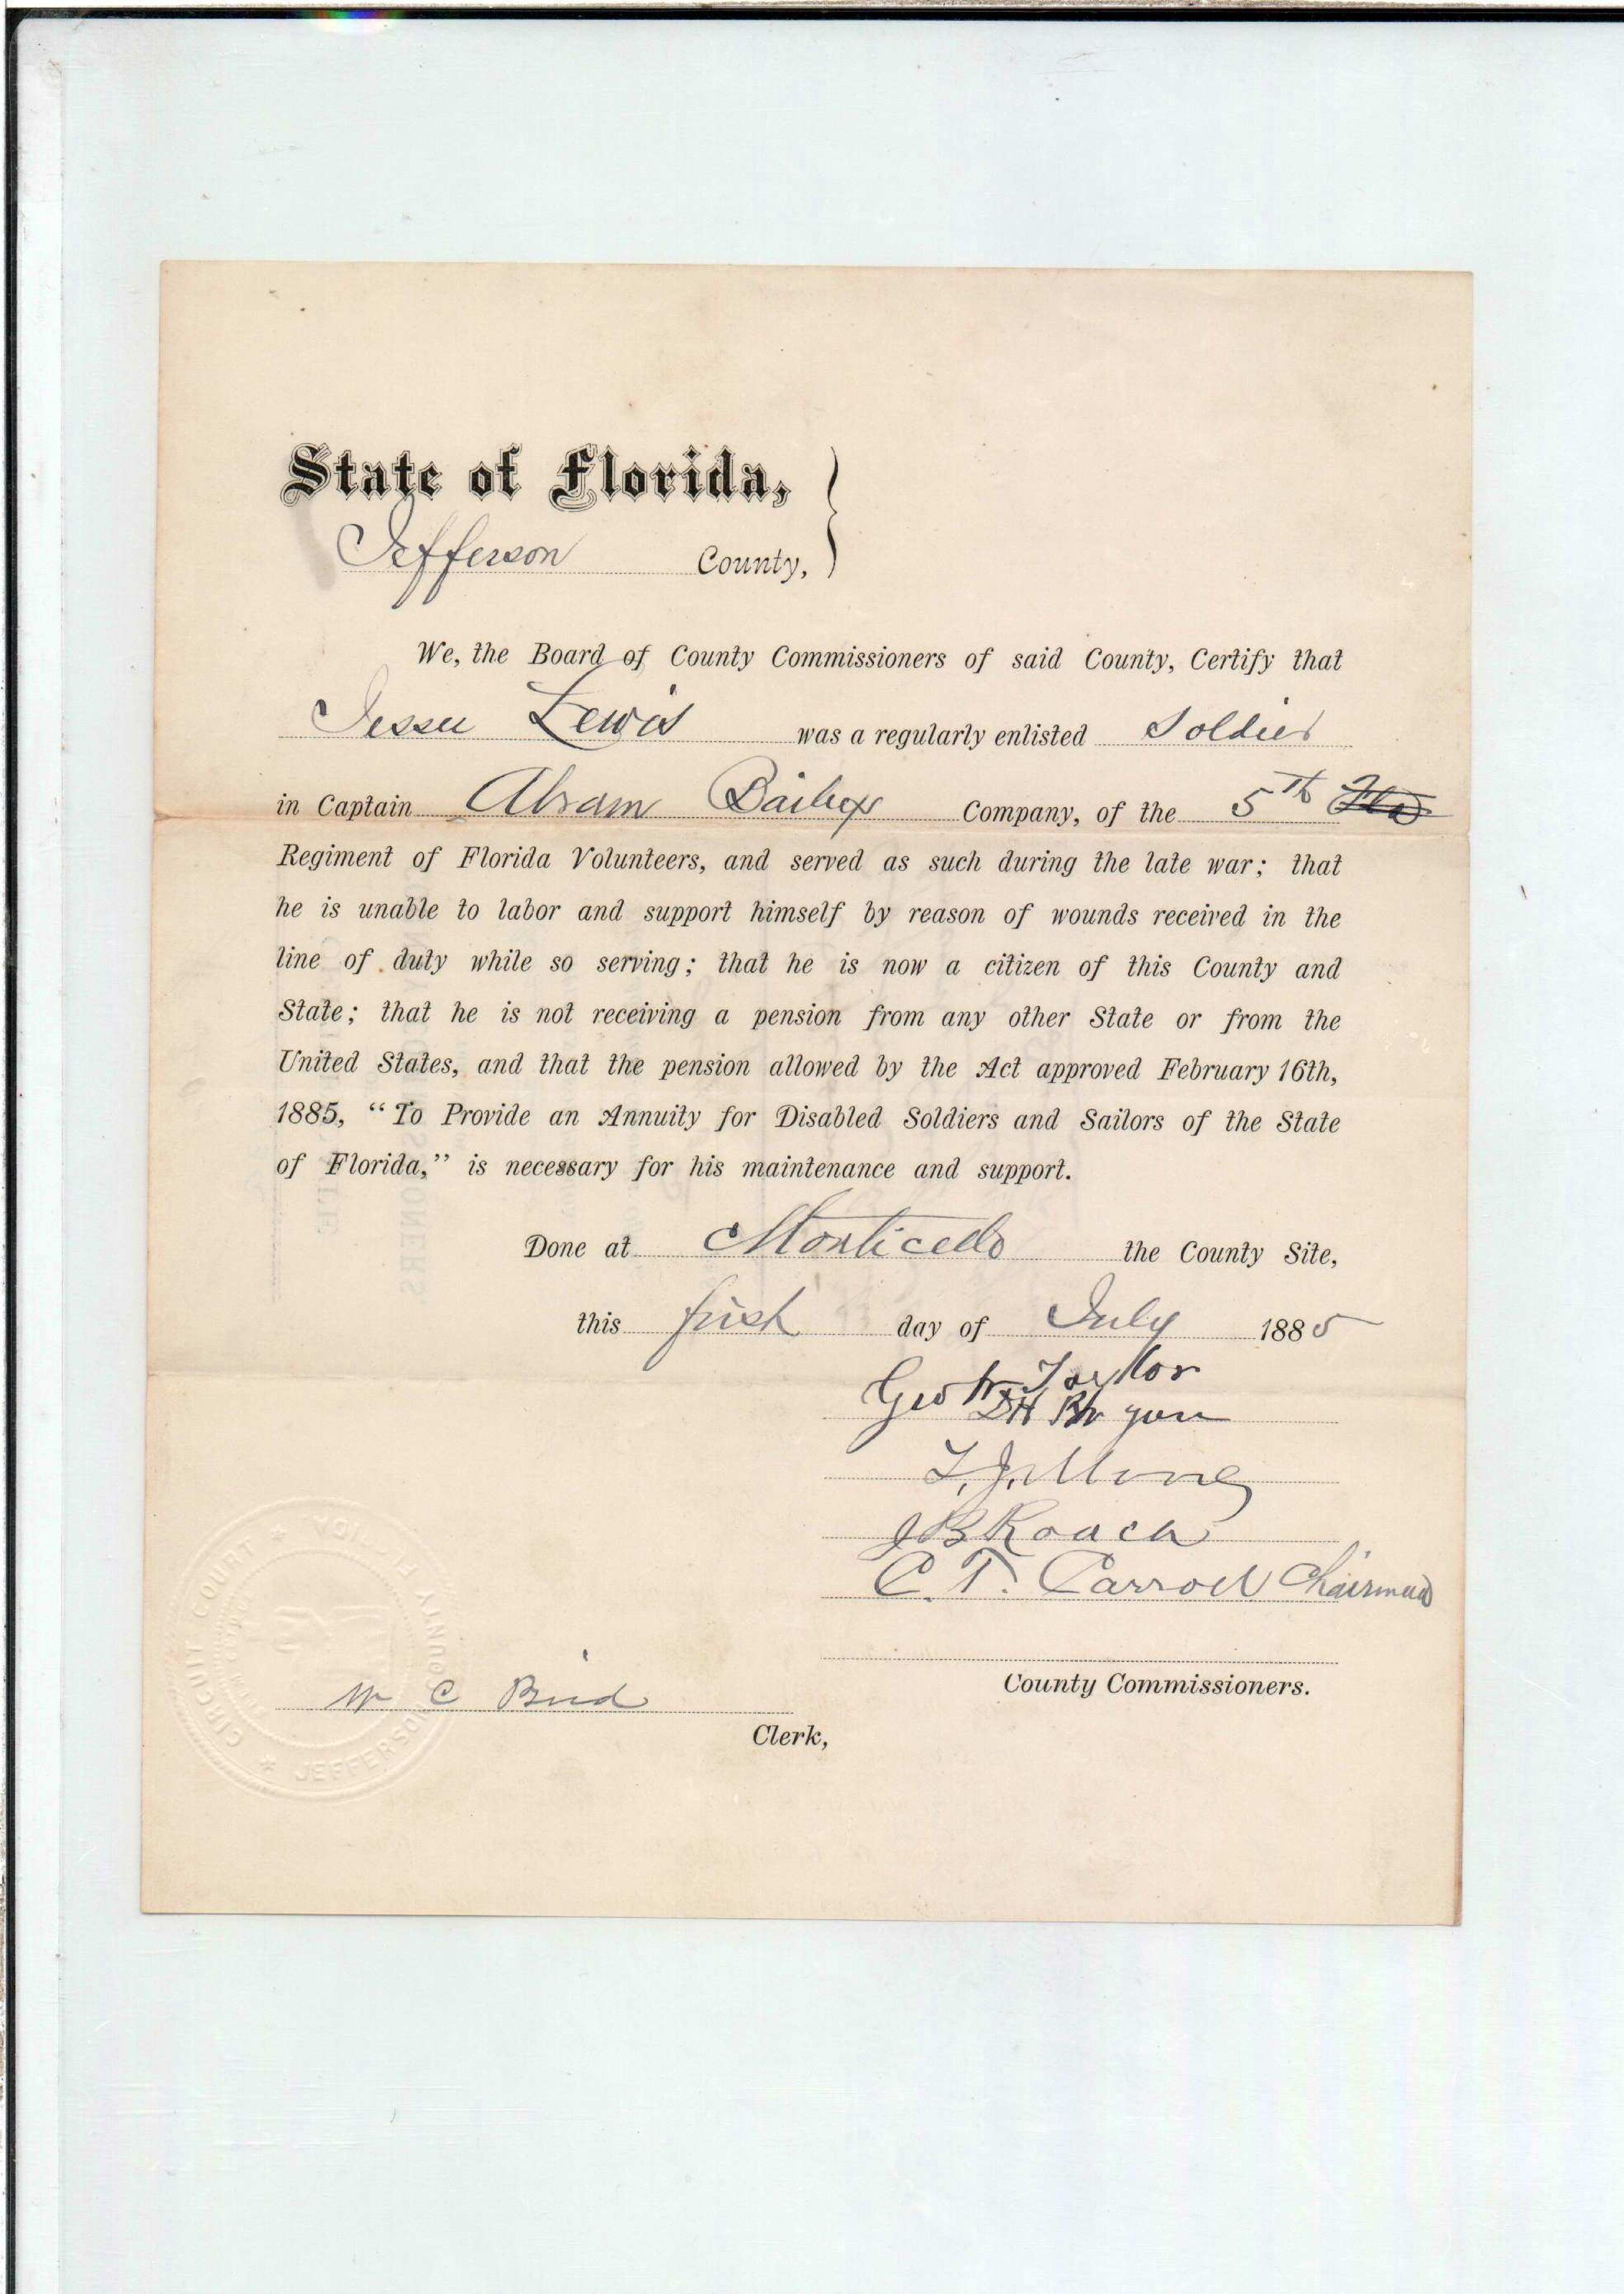 State of Florida,
Jefferson County,
We, the Board of County Commissioners of said County, Certify that
Jessee Lewis was a regularly enlisted Soldier
in Captain Abram Baileys Company, of the 5th Fla
Regiment of Florida Volunteers, and served as such during the late war; that
he is unable to labor and support himself by reason of wounds received in the
line of duty while so serving; that he is now a citizen of this County and
State; that he is not receiving a pension from any other State or from the
United States, and that the pension allowed by the Act approved February 16th,
1885, “To Provide an Annuity for Disabled Soldiers and Sailors of the State
of Florida,” is necessary for his maintenance and support.
Done at Monticello the County Site,
this first day of July 1885
Geo W Taylor
DH Bryan
T. J.
J B Roach
C. T. Carroll Chairman
County Commissioners.
W C Bird
Clerk,
CIRCUIT COURT * COUNTY * JEFFERSON